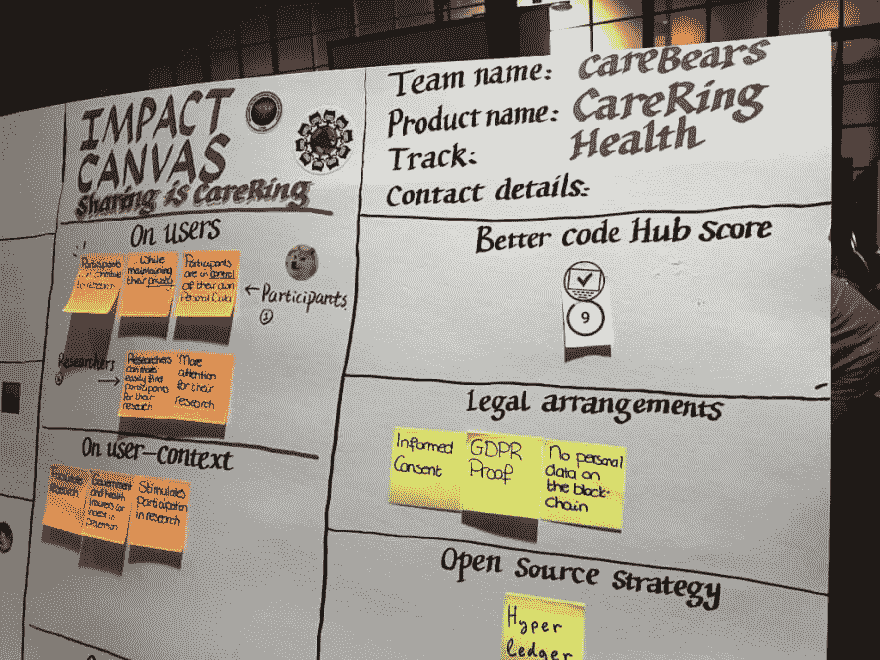 IMPACT
CANVAS
Sharing is CareRing
On users
Participants
to research
While
maintaining
their privacy
Participants
are in control
of their own
Personal Data
← Participants
Researchers
→
Researchers
can
easily find
participants
for their
research
More
attention
for their
research
On user-context
Research
Government
and Health
Insurers can
invest in
prevention
Stimulates
Participation
in research
Team name: CareBears
Product name: CareRing
Track: Health
Contact details:
Better code Hub score
9
Legal arrangements
Informed
Consent
GDPR
Proof
No personal
data on
the block-
chain
Open source strategy
Hyper
ledger